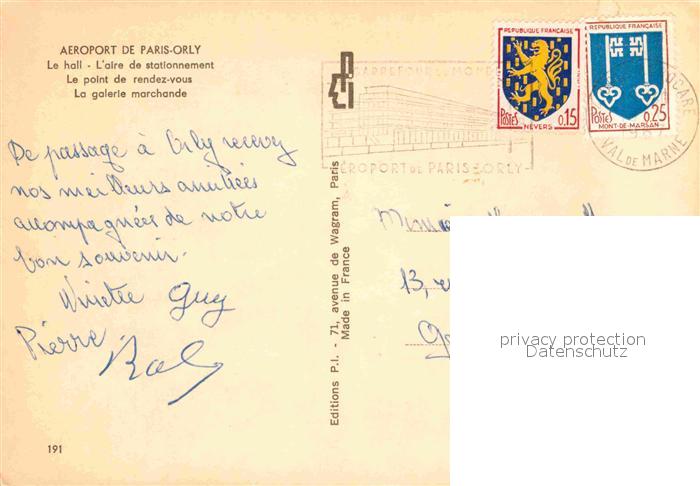 AEROPORT DE PARIS-ORLY
Le hall - L'aire de stationnement
Le point de rendez-vous
La galerie marchande
De passage à Orly recevez
nos meilleurs amitiés
accompagnées de notre
bon souvenir.
Guy
Pierre
191
Editions P.I. - 71, avenue de Wagram, Paris
Made in France
CARREFOUR MONDE
AÉROPORT DE PARIS-ORLY
REPUBLIQUE FRANÇAISE
POSTES 0,15
NEVERS
REPUBLIQUE FRANÇAISE
POSTES 0,25
MONT-DE-MARSAN
VAL DE MARNE
13,
privacy protection
Datenschutz